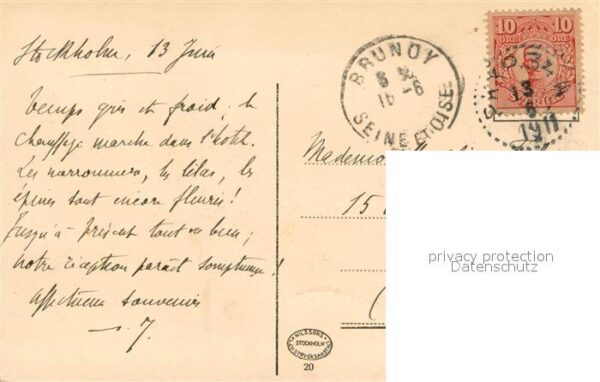 Stockholm, 13 Juin
Temps gris et froid; le
chauffage marche dans l'hôtel.
Les marronniers, les lilas, les
épines sont encore fleuris!
Jusqu'à présent tout va bien;
notre réception paraît somptueuse!
Affectueux souvenirs
10 10
ÖRE
SVERIGE
13
1911
BRUNOY
SEINE ET OISE
Mademoi
15
privacy protection
Datenschutz
NILSSONS
STOCKHOLM
20